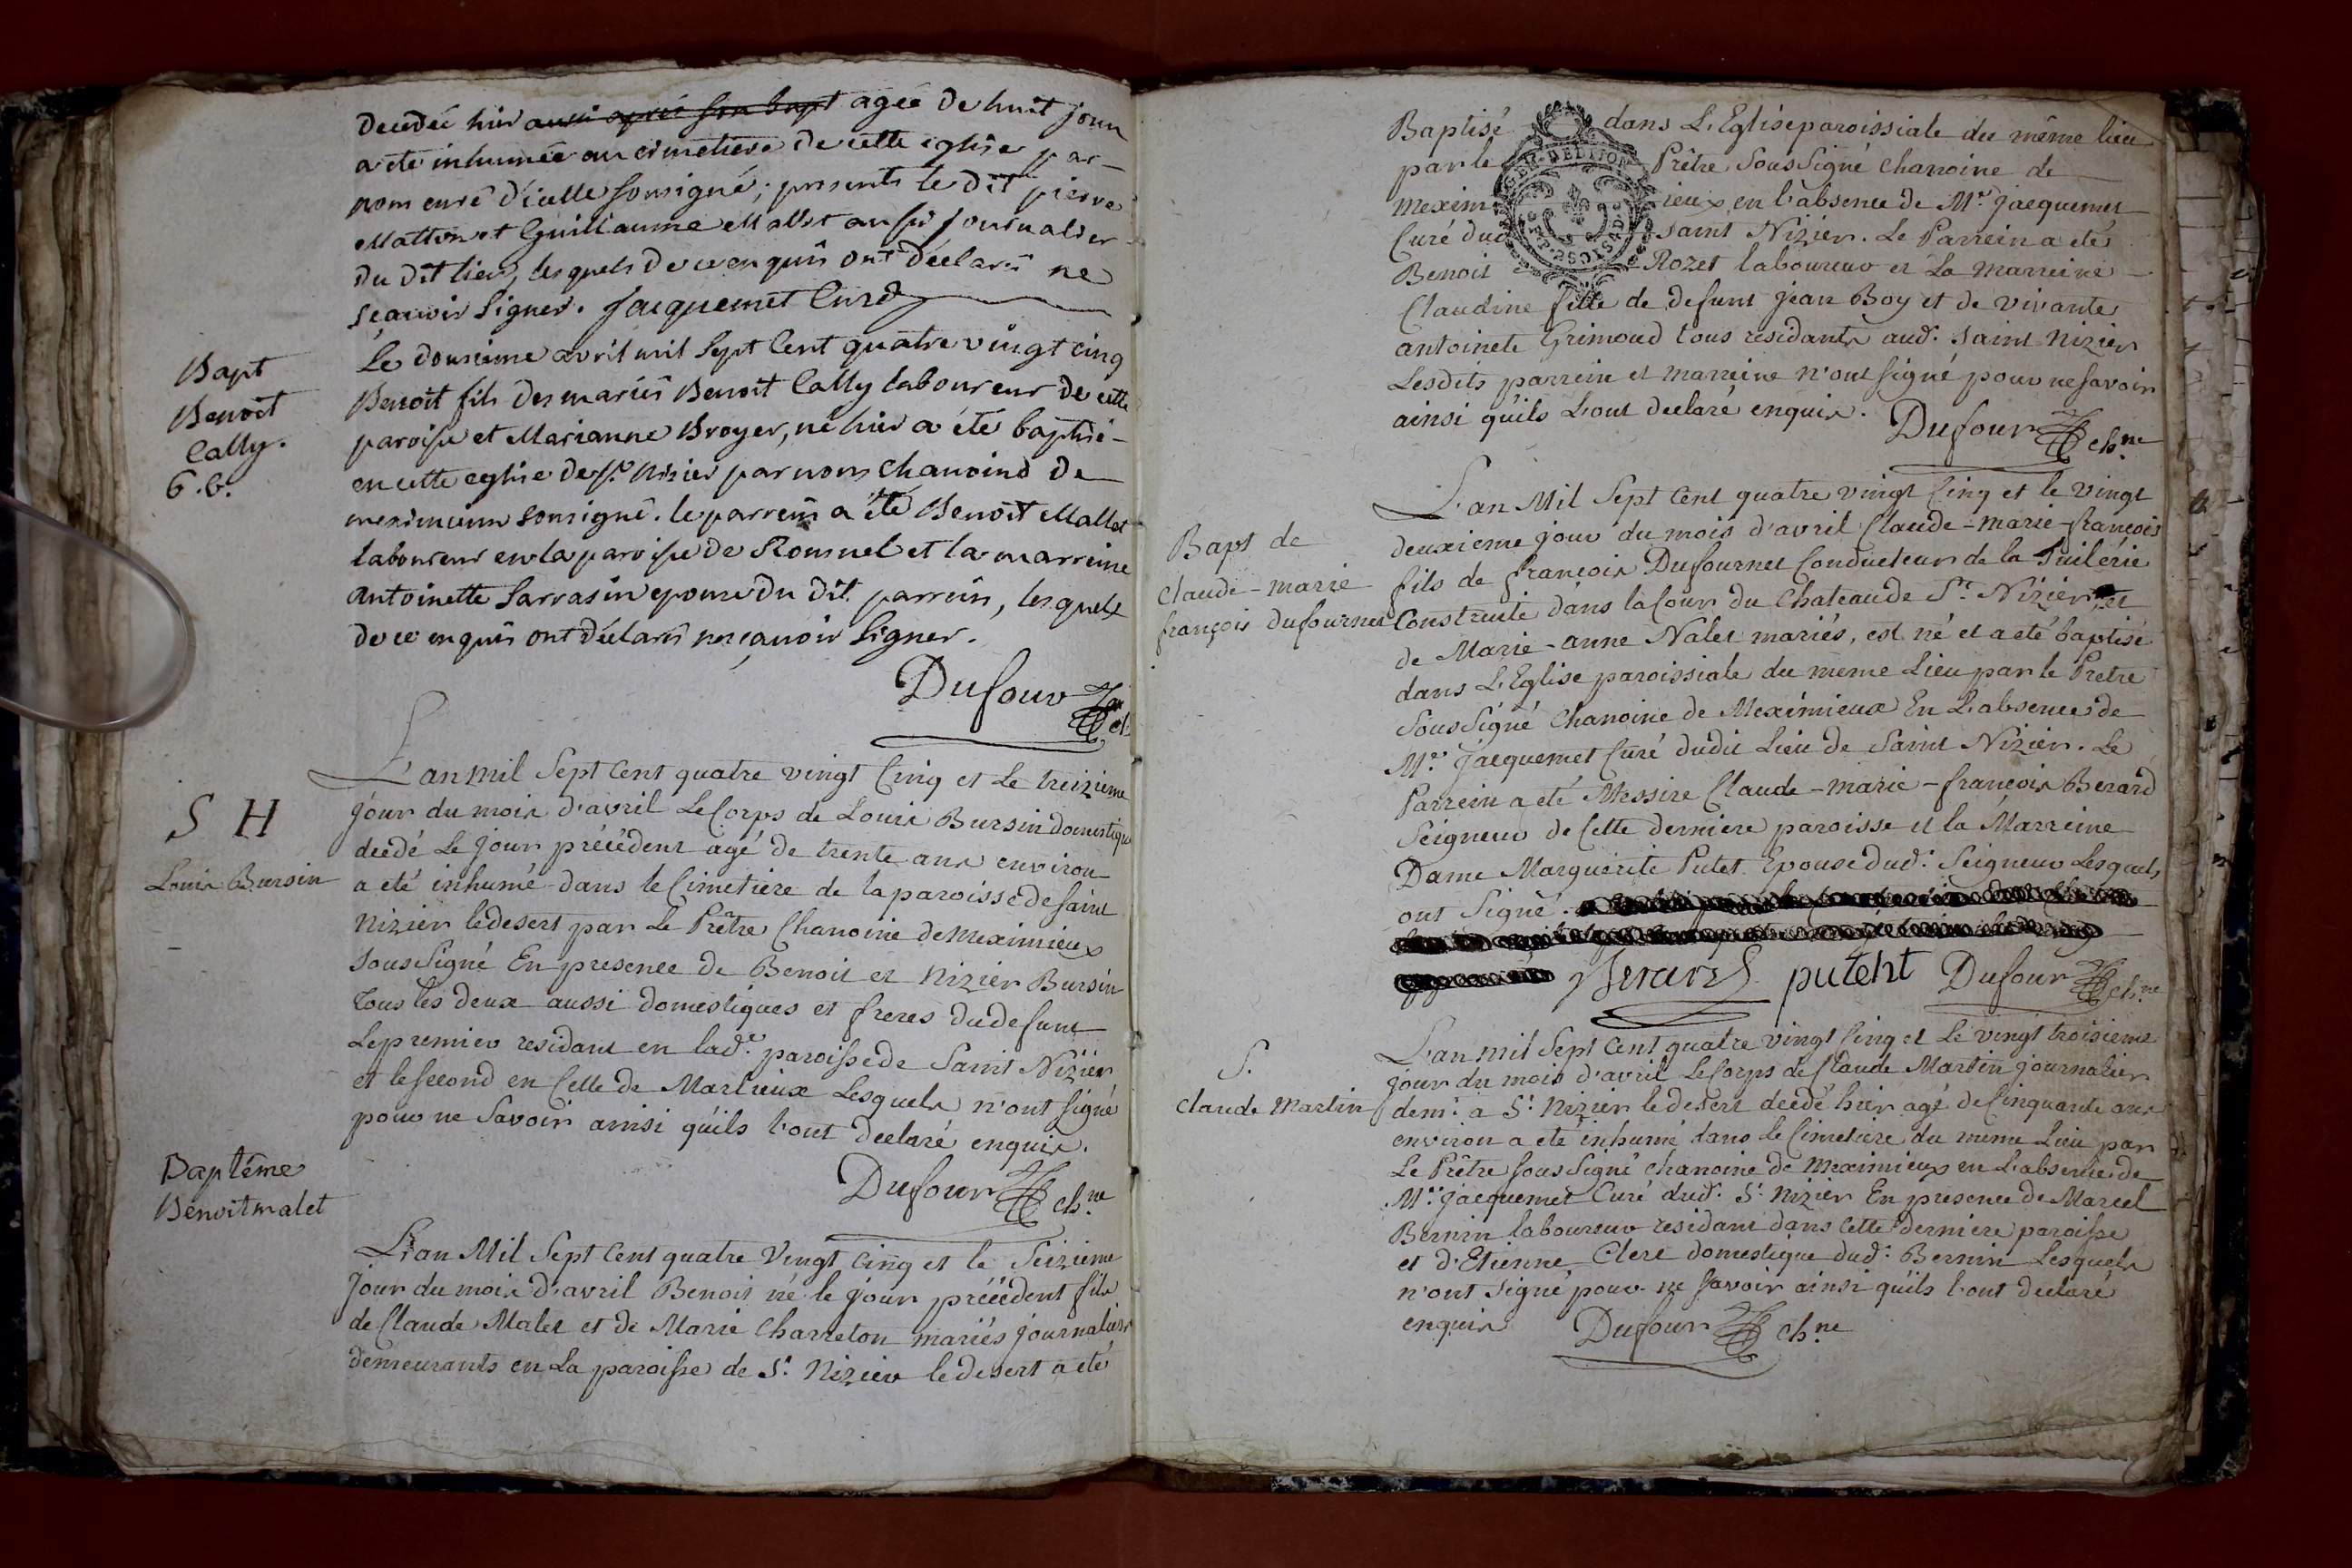 decedée hier aussi après son bapt agée de huit jours
a été inhumée au cimetiere de cette eglise par
nous curé d'icelle soussigné; presents le dit pierre
Matton et Guillaume Mallet aussi journalier
du dit lieu, lesquels de ce enquis ont déclaré ne
sçavoir signer. Jacquemet Curé
Bapt
Benoît
Cally.
6.b.
Le douzieme avril mil sept cent quatre vingt cinq
Benoît fils des mariés Benoît Cally laboureur de cette
paroisse et Marianne Broyer, né hier a été baptisé
en cette eglise de st. Nizier par nous chanoine de
meximieux soussigné. le parrein a été Benoît Mallet
laboureur en la paroisse de Romnel et la marreine
Antoinette Sarrasin epouse du dit parrein, lesquels
de ce enquis ont déclaré ne sçavoir signer.
Dufour ch
S H
Louis Bursin
L'an mil Sept Cent quatre vingt Cinq et Le treizieme
jour du mois d'avril Le Corps de Louis Bursin domestique
decedé Le jour précédent agé de trente ans environ
a eté inhumé dans le Cimetiere de la paroisse de saint
Nizier le desert par Le Prêtre Chanoine de Meximieux
sousSigné En presence de Benoit et Nizier Bursin
tous les deux aussi domestiques et freres du defunt
Le premier residant en lade. paroisse de Saint Nizier
et le second en Celle de Marlieux Lesquels n'ont signé
pour ne Savoir ainsi qu'ils l'ont declaré enquis.
Dufour ch.ne
Baptême
Benoit malet
L'an Mil Sept Cent quatre Vingt Cinq et le Seizieme
jour du mois d'avril Benois né le jour précédent fils
de Claude Malet et de Marie Charreton mariés journaliers
demeurants en La paroisse de St. Nizier le desert a eté
Baptisé dans L'Eglise paroissiale du même lieu
par le Prêtre SousSigné chanoine de
Mexim ieux en l'absence de Mr. Jacquemet
Curé dud saint Nizier. Le Parrein a eté
Benoit Rozet laboureur et La Marreine
Claudine fille de defunt jean Boy et de vivante
antoinete Grimoud tous residants aud. Saint Nizier
Lesdits parrein et marreine n'ont signé pour ne savoir
ainsi qu'ils L'ont declaré enquis. Dufour ch.ne
Bapt de
claude-marie
françois dufournet
L'an Mil Sept Cent quatre vingt Cinq et le vingt
deuxieme jour du mois d'avril Claude-marie-françois
fils de françois Dufournet Conducteur de la Tuilerie
Construite dans la Cour du Chateau de St. Nizier, et
de Marie-anne Nalet mariés, est né et a eté baptisé
dans L'Eglise paroissiale du meme Lieu par le Prêtre
SousSigné Chanoine de Meximieux En L'absence de
Mr. Jacquemet Curé dudit Lieu de Saint Nizier. Le
Parrein a eté Messire Claude-marie-françois Berard
Seigneur de Cette derniere paroisse et la Marreine
Dame Marguerite Putet Epouse dud. Seigneur Lesquels
ont Signé.
Berard putent Dufour ch.ne
S.
Claude Martin
L'an mil Sept Cent quatre vingt Cinq et Le vingt troisieme
jour du mois d'avril Le Corps de Claude Martin journalier
demt. a St. Nizier le desert decedé hier agé de Cinquante ans
environ a eté inhumé dans le Cimetiere du meme Lieu par
Le Prêtre sousSigné chanoine de Meximieux en L'absence de
Mr. Jacquemet Curé dud. St. Nizier En presence de Marcel
Bernin laboureur residant dans Cette derniere paroisse
et d'Etienne Clerc domestique dud. Bernin Lesquels
n'ont Signé pour ne savoir ainsi qu'ils l'ont declaré
enquis Dufour ch.ne